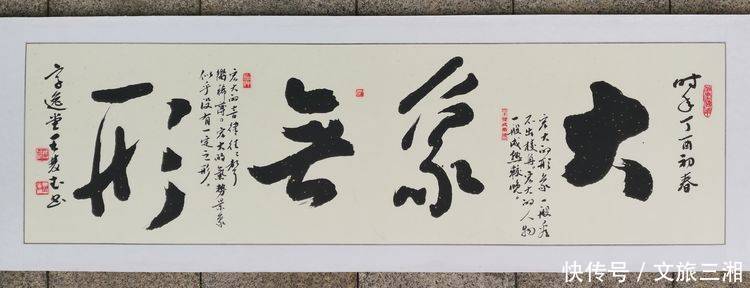 时在丁酉初春
大象無形
宏大的形象一般看
不出棱角宏大的人物
一般成熟较晚。
宏大的音律往往声
响稀薄。宏大的氣势景象
似乎没有一定之形。
逸堂王书
快传号 / 文旅三湘